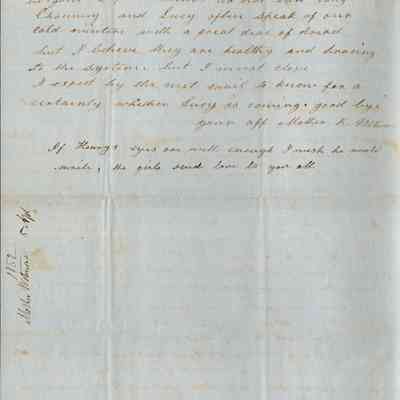 Channing and Lucy often speak of our
cold winters with a great deal of dread
but I believe they are healthy and bracing
to the system. but I must close
I expect by the next mail to know for a
certainty whether Lucy is coming. good bye
your aff Mother K.
If Henrys eyes are well enough I wish he would
write, the girls send love to you all
1852
Mother